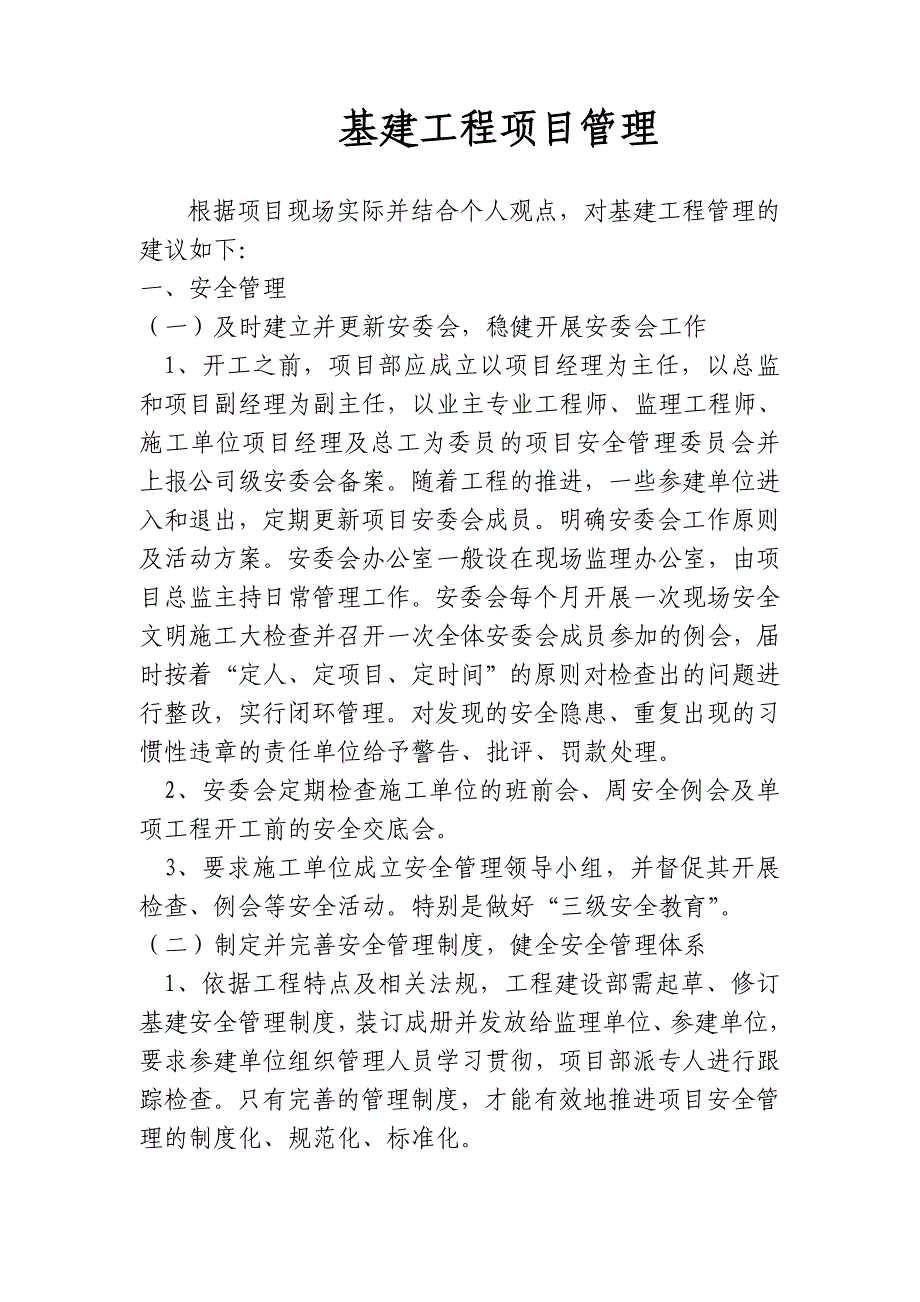 基建工程项目管理
根据项目现场实际并结合个人观点，对基建工程管理的
建议如下：
一、安全管理
（一）及时建立并更新安委会，稳健开展安委会工作
1、开工之前，项目部应成立以项目经理为主任，以总监
和项目副经理为副主任，以业主专业工程师、监理工程师、
施工单位项目经理及总工为委员的项目安全管理委员会并
上报公司级安委会备案。随着工程的推进，一些参建单位进
入和退出，定期更新项目安委会成员。明确安委会工作原则
及活动方案。安委会办公室一般设在现场监理办公室，由项
目总监主持日常管理工作。安委会每个月开展一次现场安全
文明施工大检查并召开一次全体安委会成员参加的例会，届
时按着“定人、定项目、定时间”的原则对检查出的问题进
行整改，实行闭环管理。对发现的安全隐患、重复出现的习
惯性违章的责任单位给予警告、批评、罚款处理。
2、安委会定期检查施工单位的班前会、周安全例会及单
项工程开工前的安全交底会。
3、要求施工单位成立安全管理领导小组，并督促其开展
检查、例会等安全活动。特别是做好“三级安全教育”。
（二）制定并完善安全管理制度，健全安全管理体系
1、依据工程特点及相关法规，工程建设部需起草、修订
基建安全管理制度，装订成册并发放给监理单位、参建单位，
要求参建单位组织管理人员学习贯彻，项目部派专人进行跟
踪检查。只有完善的管理制度，才能有效地推进项目安全管
理的制度化、规范化、标准化。